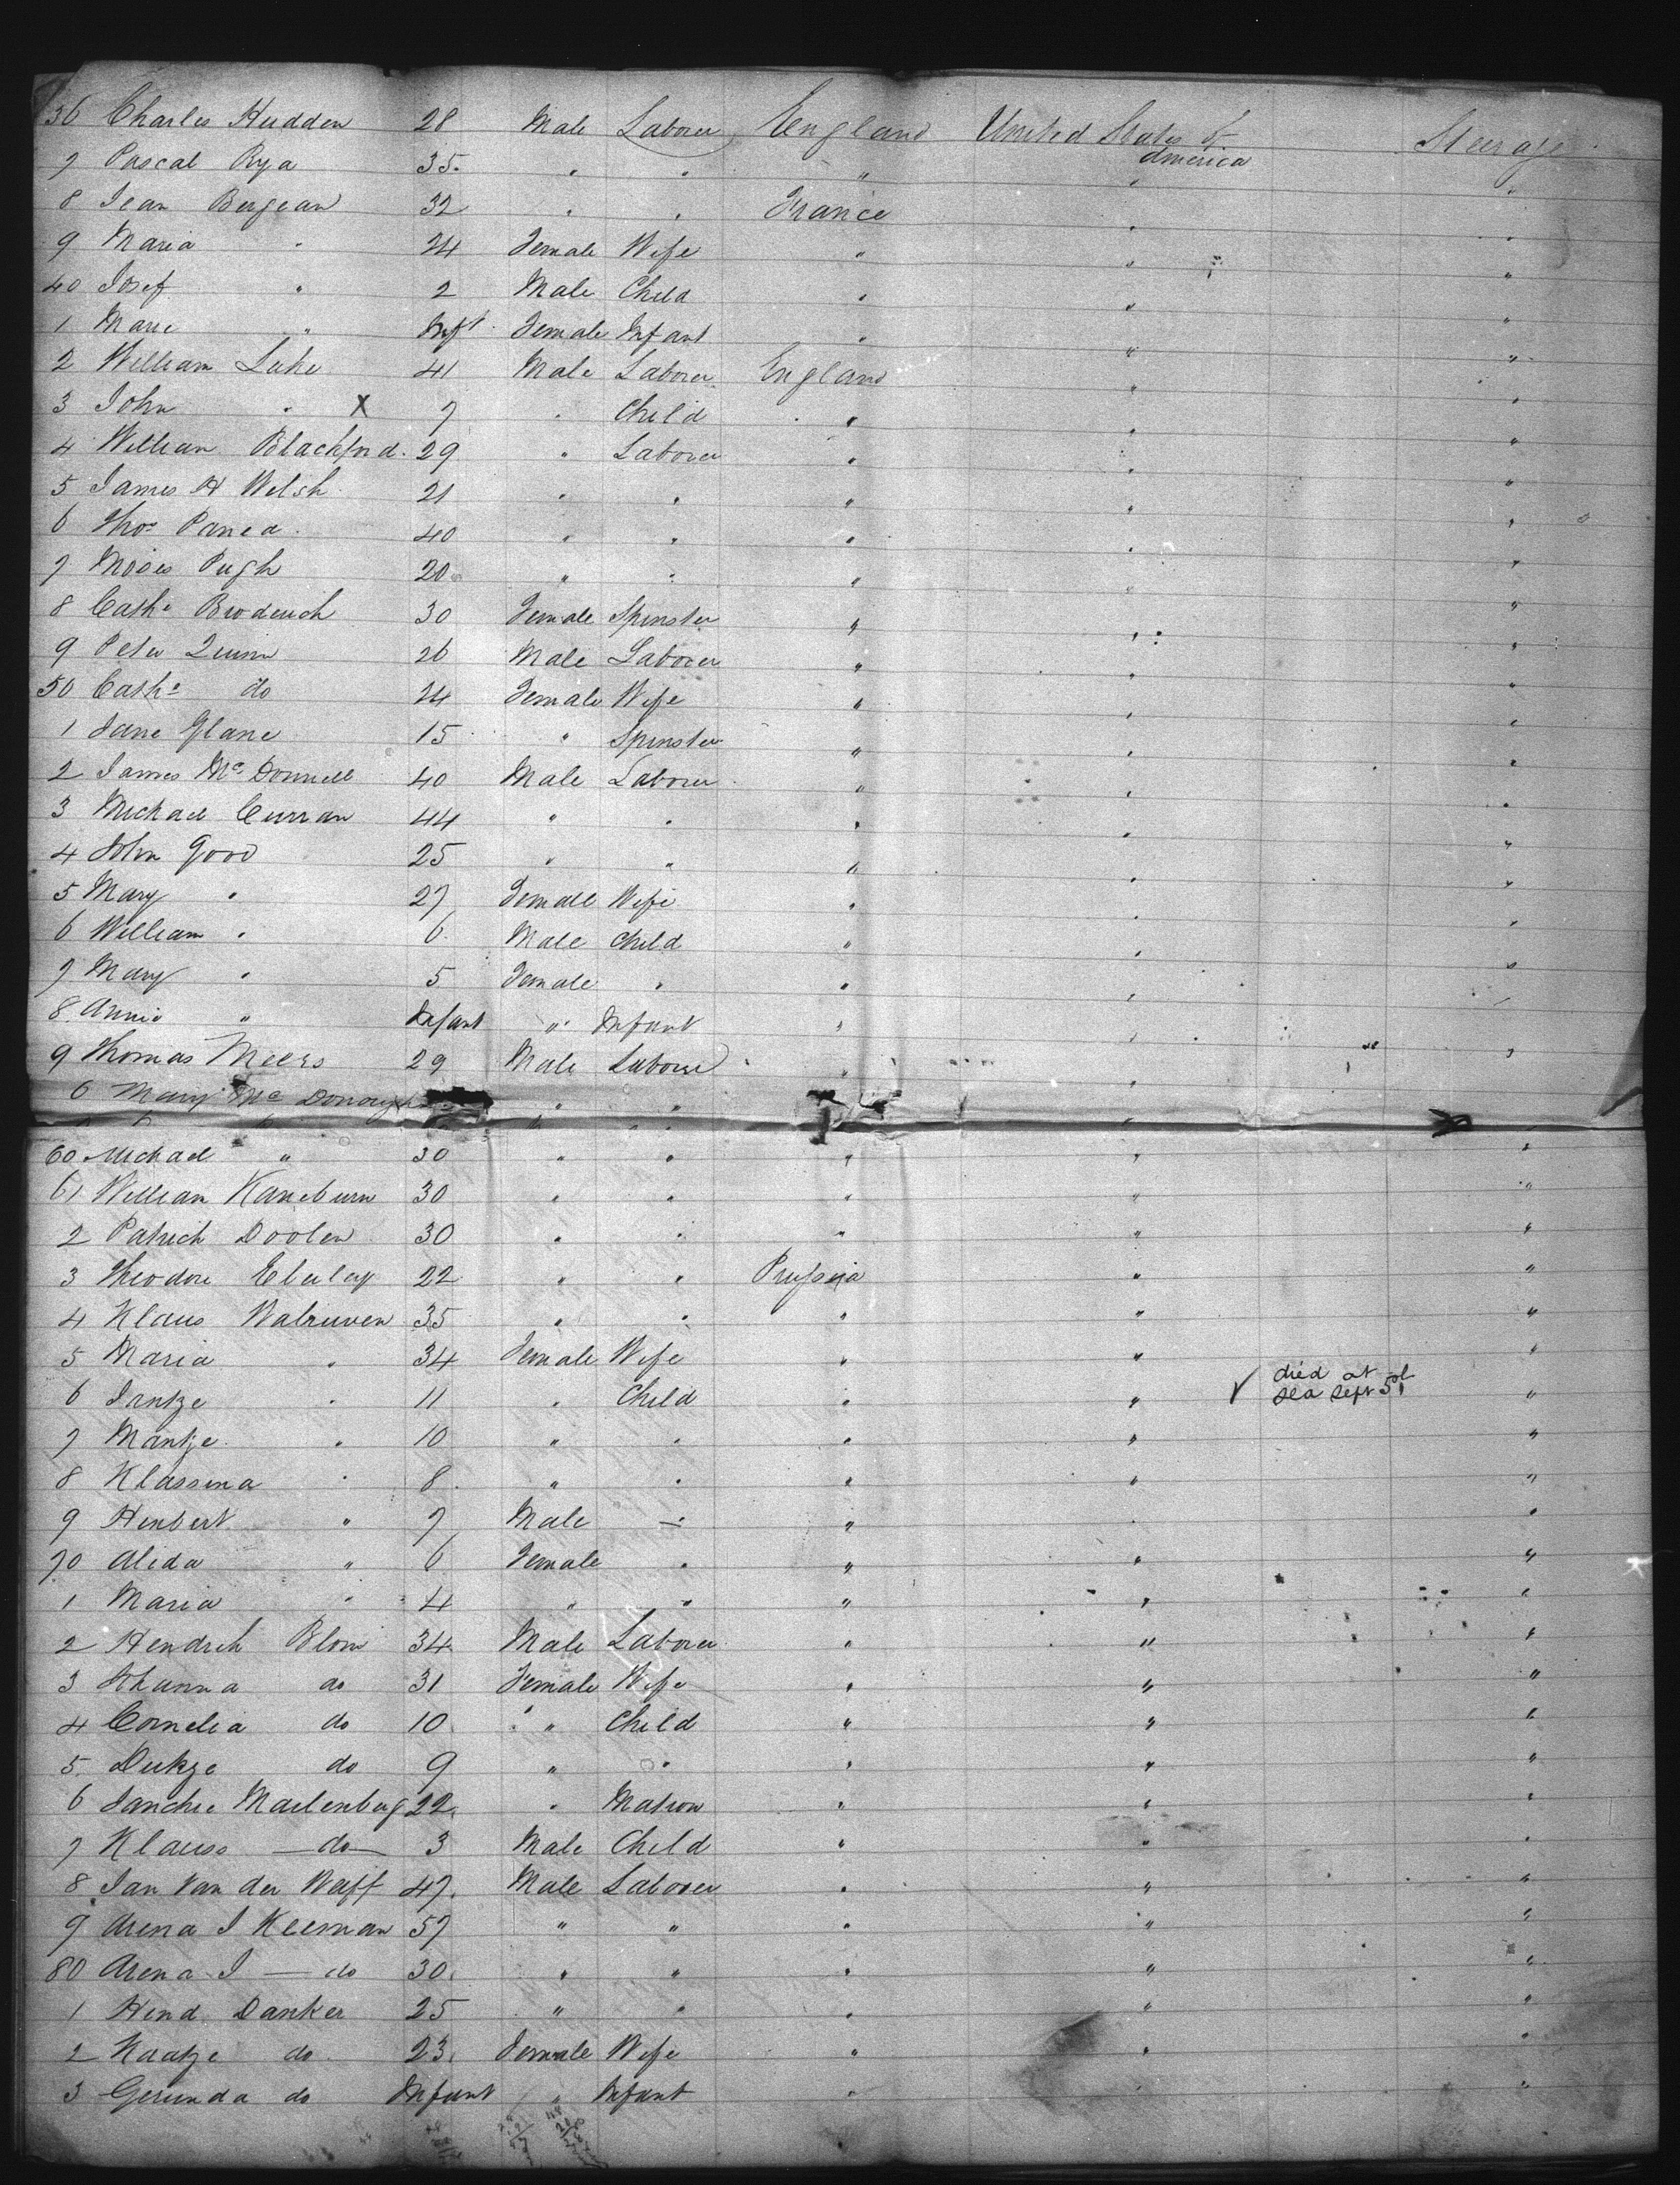 36 Charles Hudden 28 Male Laborer England United States of America Steerage
7 Pascal Rya 35 " " " " "
8 Jean Bergean 32 " " France " "
9 Maria " 24 Female Wife " " "
40 Josef " 2 Male Child " " "
1 Marie " Inft Female Infant " " "
2 William Luke 41 Male Laborer England " "
3 John " X 7 " Child " " "
4 William Blackford 29 " Laborer " " "
5 James H Welsh 21 " " " " "
6 Thos 40 " " " " "
7 Moses Pugh 20 " " " " "
8 Cathe Broderich 30 Female Spinster " " "
9 Peter Quinn 26 Male Laborer " " "
50 Cathe do 24 Female Wife " " "
1 Jane Glane 15 " Spinster " " "
2 James Mc Donnell 40 Male Laborer " " "
3 Michael Curran 44 " " " " "
4 John Good 25 " " " " "
5 Mary " 27 Female Wife " " "
6 William " 6 Male Child " " "
7 Mary " 5 Female " " " "
8 Annie " Infant " Infant " " "
9 Thomas Meers 29 Male Laborer " " "
6 Mary Mc Donough " " "
60 Michael " 30 " " " " "
61 William Kaneburn 30 " " " " "
2 Patrick Doolen 30 " " " " "
3 Theodore 22 " " Prussia " "
4 Klaus Walruven 35 " " " " "
5 Maria " 34 Female Wife " " "
6 Jantje " 11 " Child " " ✓ died at sea Sept "
7 Mantje " 10 " " " " "
8 Klassina " 8 " " " " "
9 Henbert " 7 Male " " " "
70 Alida " 6 Female " " " "
1 Maria " 4 " " " " "
2 Hendrik Blom 34 Male Laborer " " "
3 Johanna do 31 Female Wife " " "
4 Cornelia do 10 " Child " " "
5 Dukje do 9 " " " " "
6 Janchie Marlenberg 22 " Matron " " "
7 Klauss — do — 3 Male Child " " "
8 Jan Van der Waff 47 Male Laborer " " "
9 Arena J Keeman 57 " " " " "
80 Arena J — do 30 " " " " "
1 Hend. Danker 25 " " " " "
2 Kaatje do 23 Female Wife " " "
3 Gerunda do Infant " Infant " " "